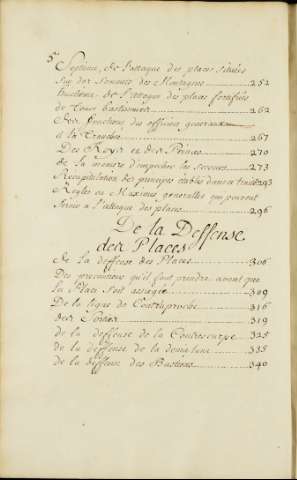 Systeme, de l'attaque des places situées
Sur des Sommets des Montagne 252
huitieme, de l'attaque des places fortifiées
de Tours bastionnées 262
Des fonctions des officiers generaux
a la Tranchée 267
Des Roys et des Princes 270
de la maniere d'empecher les secours 273
Recapitulation des principes etablis dans ce traité 293
Regles ou Maximes generalles qui peuvent
servir a l'attaque des places 296
De la Deffense
des Places
de la deffense des Places 306
Des precautions qu'il faut prendre avant que
la Place soit assiegée 309
De la ligne de Contraproche 316
des Sorties 319
de la deffense de la Contrescarpe 325
de la deffense de la demi lune 335
de la deffense des Bastions 340